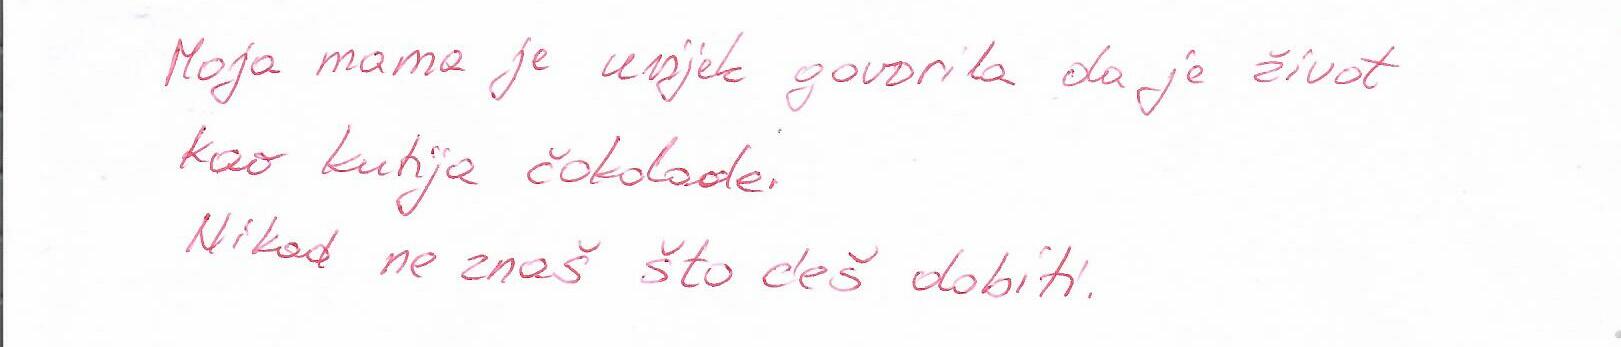 Moja mama je uvijek govorila da je život
kao kutija čokolade.
Nikad ne znaš što ćeš dobiti.